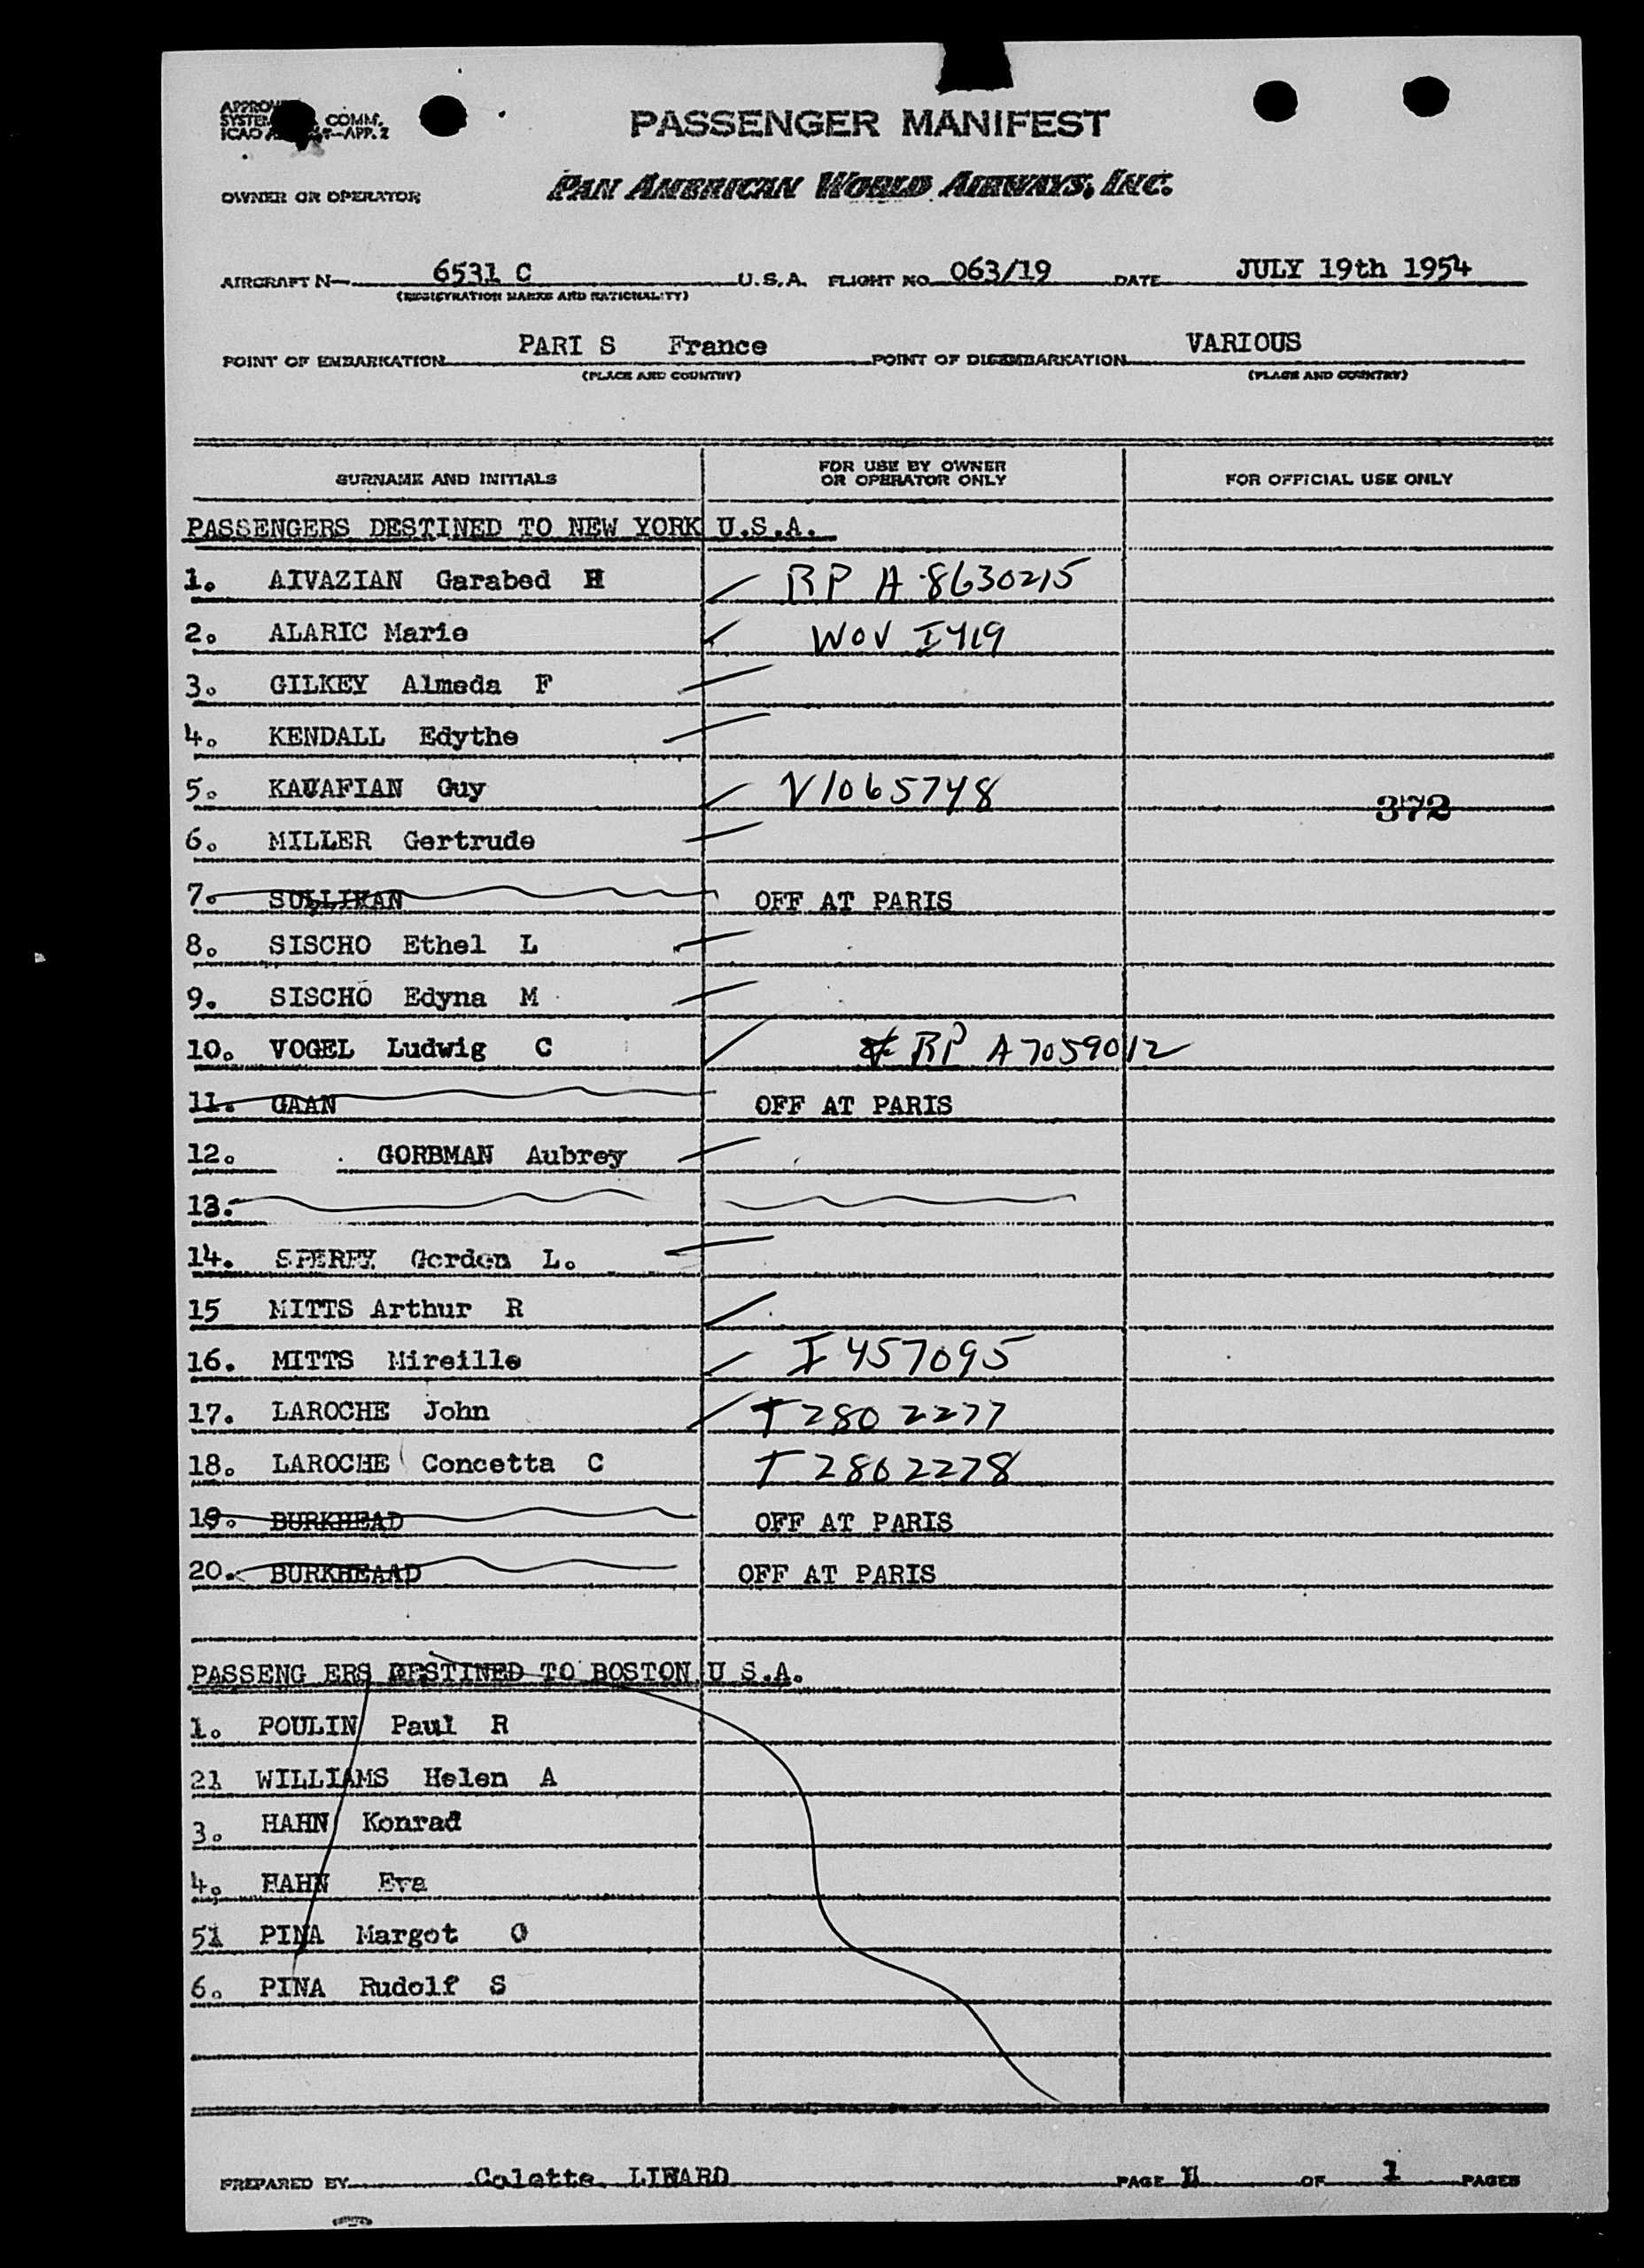 PASSENGER MANIFEST
OWNER OR OPERATOR PAN AMERICAN WORLD AIRWAYS, INC.
AIRCRAFT N 6531 C U.S.A. FLIGHT NO. 063/19 DATE JULY 19th 1954
(REGISTRATION MARKS AND NATIONALITY)
POINT OF EMBARKATION PARI S France POINT OF DISEMBARKATION VARIOUS
(PLACE AND COUNTRY) (PLACE AND COUNTRY)
SURNAME AND INITIALS FOR USE BY OWNER OR OPERATOR ONLY FOR OFFICIAL USE ONLY
PASSENGERS DESTINED TO NEW YORK U.S.A.
1. AIVAZIAN Garabed H RP A 8630215
2. ALARIC Marie WOV I419
3. GILKEY Almeda F
4. KENDALL Edythe
5. KAUAFIAN Guy V1065748
372
6. MILLER Gertrude
7. OFF AT PARIS
8. SISCHO Ethel L
9. SISCHO Edyna M
10. VOGEL Ludwig C RP A7059012
11. GAAN OFF AT PARIS
12. GORBMAN Aubrey
13.
14. SPERRY Gordon L.
15 MITTS Arthur R
16. MITTS Mireille I 457095
17. LAROCHE John T2802277
18. LAROCHE Concetta C T 2802278
19. BURKHEAD OFF AT PARIS
20. BURKHEAAD OFF AT PARIS
PASSENG ERS DESTINED TO BOSTON U S.A.
1. POULIN Paul R
21 WILLIAMS Helen A
3. HAHN Konrad
4. HAHN Eva
51 PINA Margot O
6. PINA Rudolf S
PREPARED BY Colette PAGE OF 1 PAGES